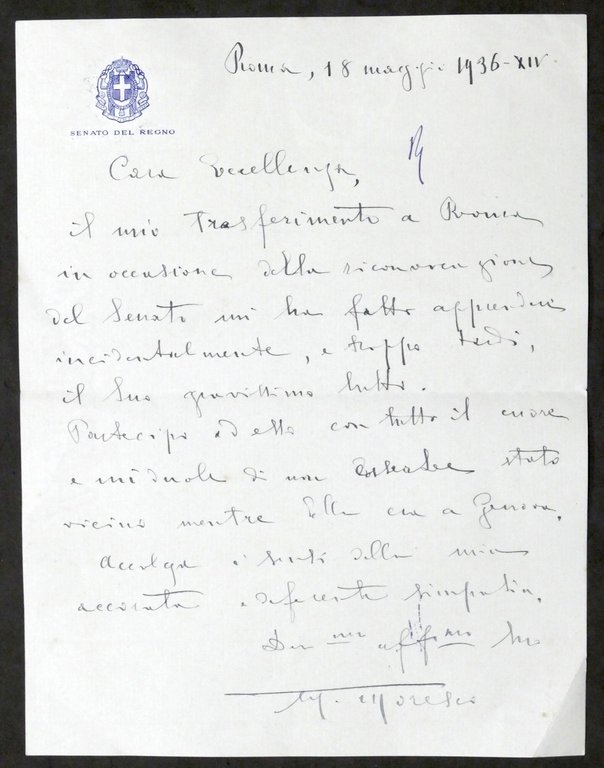 Roma, 18 maggio 1936-XIV
SENATO DEL REGNO
Cara Eccellenza,
il mio trasferimento a Roma
in occasione della riconvocazione
del Senato mi ha fatto apprendere
incidentalmente, e troppo tardi,
il Suo gravissimo lutto.
Partecipo ad esso con tutto il cuore
e mi duole di non essere stato
vicino mentre Ella era a Genova.
Accolga i sensi della mia
accorata e deferente simpatia.
Dev.mo aff.mo Suo
M. Moresco